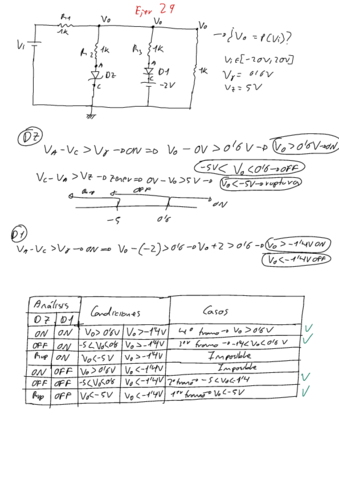 Ejer 29
R1
1k
Vo
Vo
Vo
→ ¿Vo = f(Vi)?
Vi
R2
1k
R3
1k
1k
Vi ∈ [-20V, 20V]
Vγ = 0'6V
Vz = 5V
A
DZ
C
A
D1
C
-2V
DZ
VA-VC > Vγ → ON ⇒ Vo - 0V > 0'6V → Vo > 0'6V → ON
-5V < Vo < 0'6 → OFF
VC-VA > Vz → Zener ⇒ 0V - Vo > 5V → Vo < -5V → ruptura
Rup
OFF
ON
-5
0'6
D1
VA-VC > Vγ → ON ⇒ Vo - (-2) > 0'6 → Vo + 2 > 0'6 → Vo > -1'4V ON
Vo < -1'4V OFF
Análisis Condiciones Casos
DZ D1
ON ON Vo > 0'6V Vo > -1'4V 4º tramo → Vo > 0'6V ✓
OFF ON -5 < Vo < 0'6 Vo > -1'4V 3er tramo → -1'4 < Vo < 0'6 V ✓
Rup ON Vo < -5V Vo > -1'4V Imposible
ON OFF Vo > 0'6V Vo < -1'4V Imposible
OFF OFF -5 < Vo < 0'6 Vo < -1'4V 2º tramo → -5 < Vo < -1'4 ✓
Rup OFF Vo < -5V Vo < -1'4V 1er tramo → Vo < -5V ✓